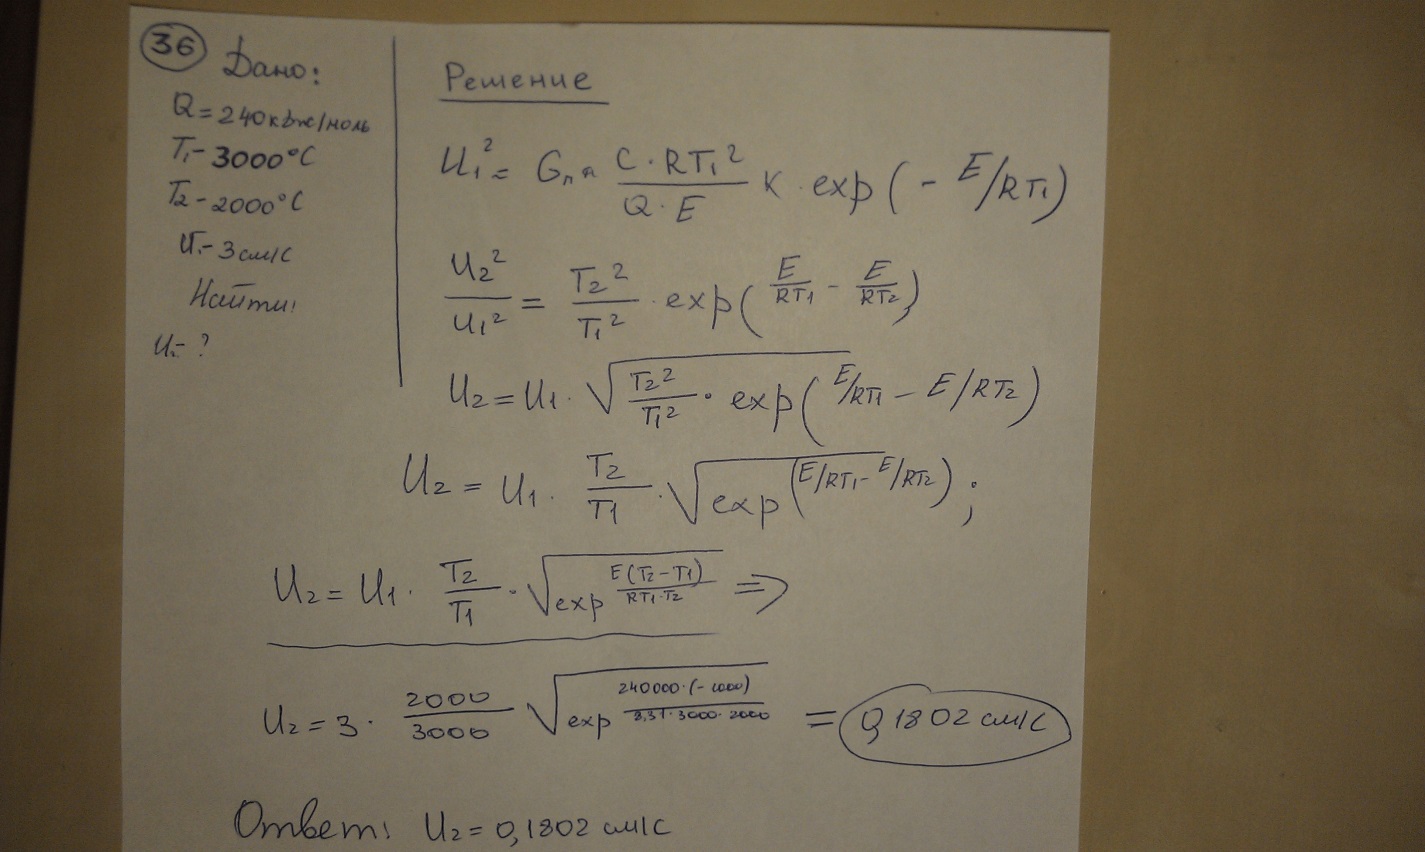 36 Дано:
Q = 240 кДж/моль
T₁ - 3000°C
T₂ - 2000°C
U₁ - 3 см/с
Найти:
U₂ - ?
Решение
U₁² = C · RT₁² / Q · E K · exp(- E/RT₁)
U₂² / U₁² = T₂² / T₁² · exp(E/RT₁ - E/RT₂)
U₂ = U₁ · √(T₂² / T₁² · exp(E/RT₁ - E/RT₂)
U₂ = U₁ · T₂ / T₁ · √exp(E/RT₁ - E/RT₂) ;
U₂ = U₁ · T₂ / T₁ · √exp E(T₂ - T₁) / RT₁·T₂ =>
U₂ = 3 · 2000 / 3000 √exp 240000·(-1000) / 8,31·3000·2000 = 0,1802 см/с
Ответ: U₂ = 0,1802 см/с